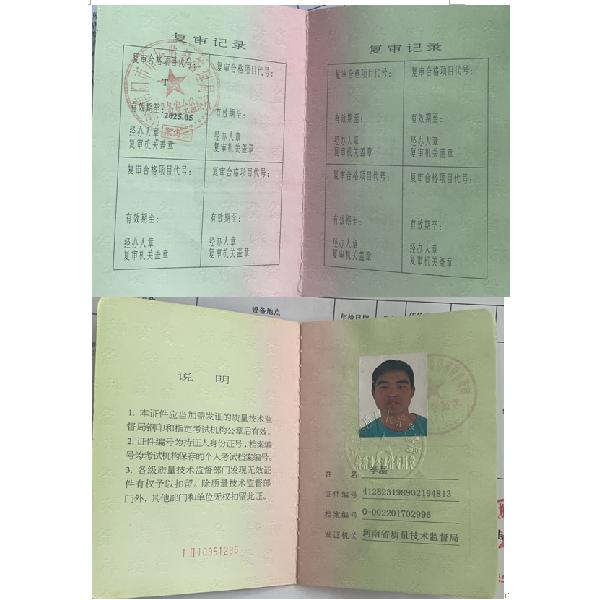 复审记录
复审合格项目代号：
复审合格项目代号：
T
有效期至：
2025.05
有效期至：
经办人章
复审机关盖章
经办人章
复审机关盖章
复审合格项目代号：
复审合格项目代号：
有效期至：
有效期至：
经办人章
复审机关盖章
经办人章
复审机关盖章
复审记录
复审合格项目代号：
复审合格项目代号：
有效期至：
有效期至：
经办人章
复审机关盖章
经办人章
复审机关盖章
复审合格项目代号：
复审合格项目代号：
有效期至：
有效期至：
经办人章
复审机关盖章
经办人章
复审机关盖章
设备地点
说 明
1. 本证件应当加盖发证的质量技术监
督局钢印和指定考试机构公章后有效。
2. 证件编号为持证人身份证号，档案编
号为考试机构保存的个人考试档案编号。
3. 各级质量技术监督部门发现无效证
件有权予以扣留。除质量技术监督部
门外，其他部门和单位无权扣留此证。
姓 名
证件编号 412823198902194813
档案编号 0-002201702996
发证机关 河南省质量技术监督局